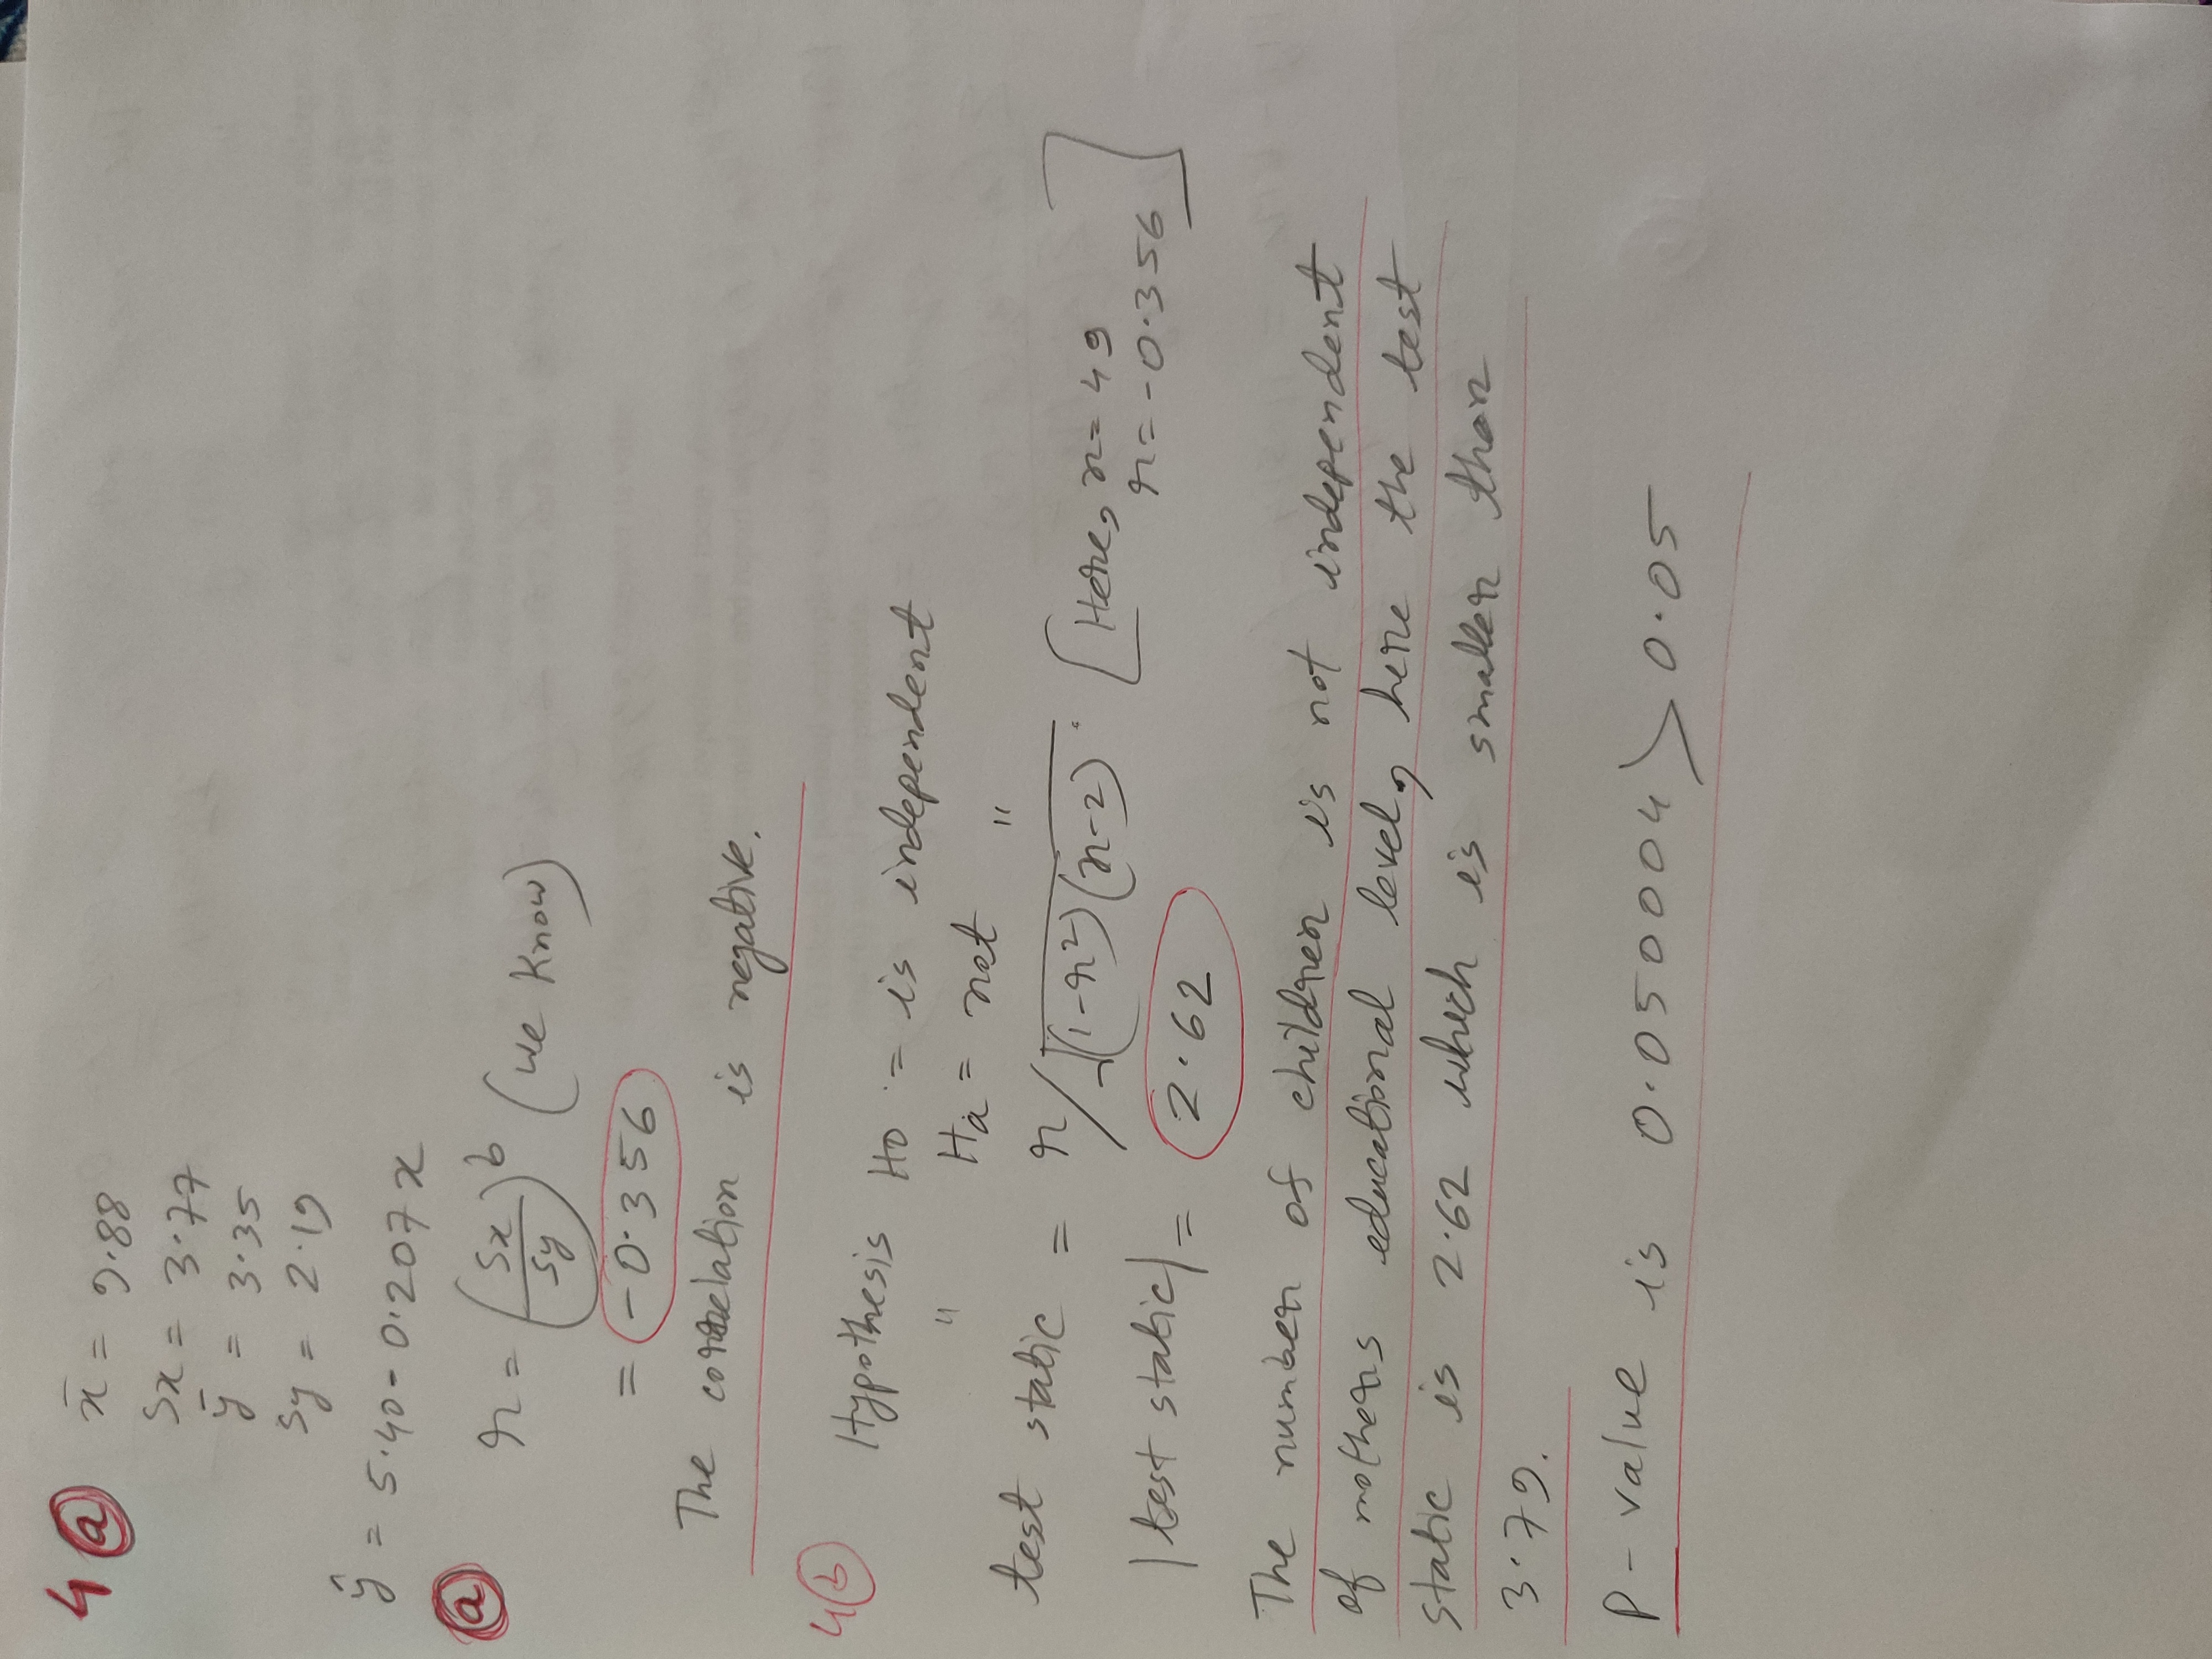 4 ⓐ x̄ = 9.88
Sx = 3.77
ȳ = 3.35
Sy = 2.19
ŷ = 5.40 - 0.207x
ⓐ r = (Sx/Sy)b (we know)
= -0.356
The correlation is negative.
4 ⓑ
Hypothesis H0 := is independent
" Ha = not "
test static = r/√(1-r²)(n-2) [Here, n = 49
r = -0.356]
|test static| = 2.62
The number of children is not independent
of mothers educational level, here the test
static is 2.62 which is smaller than
3.79.
P-value is 0.050004 > 0.05